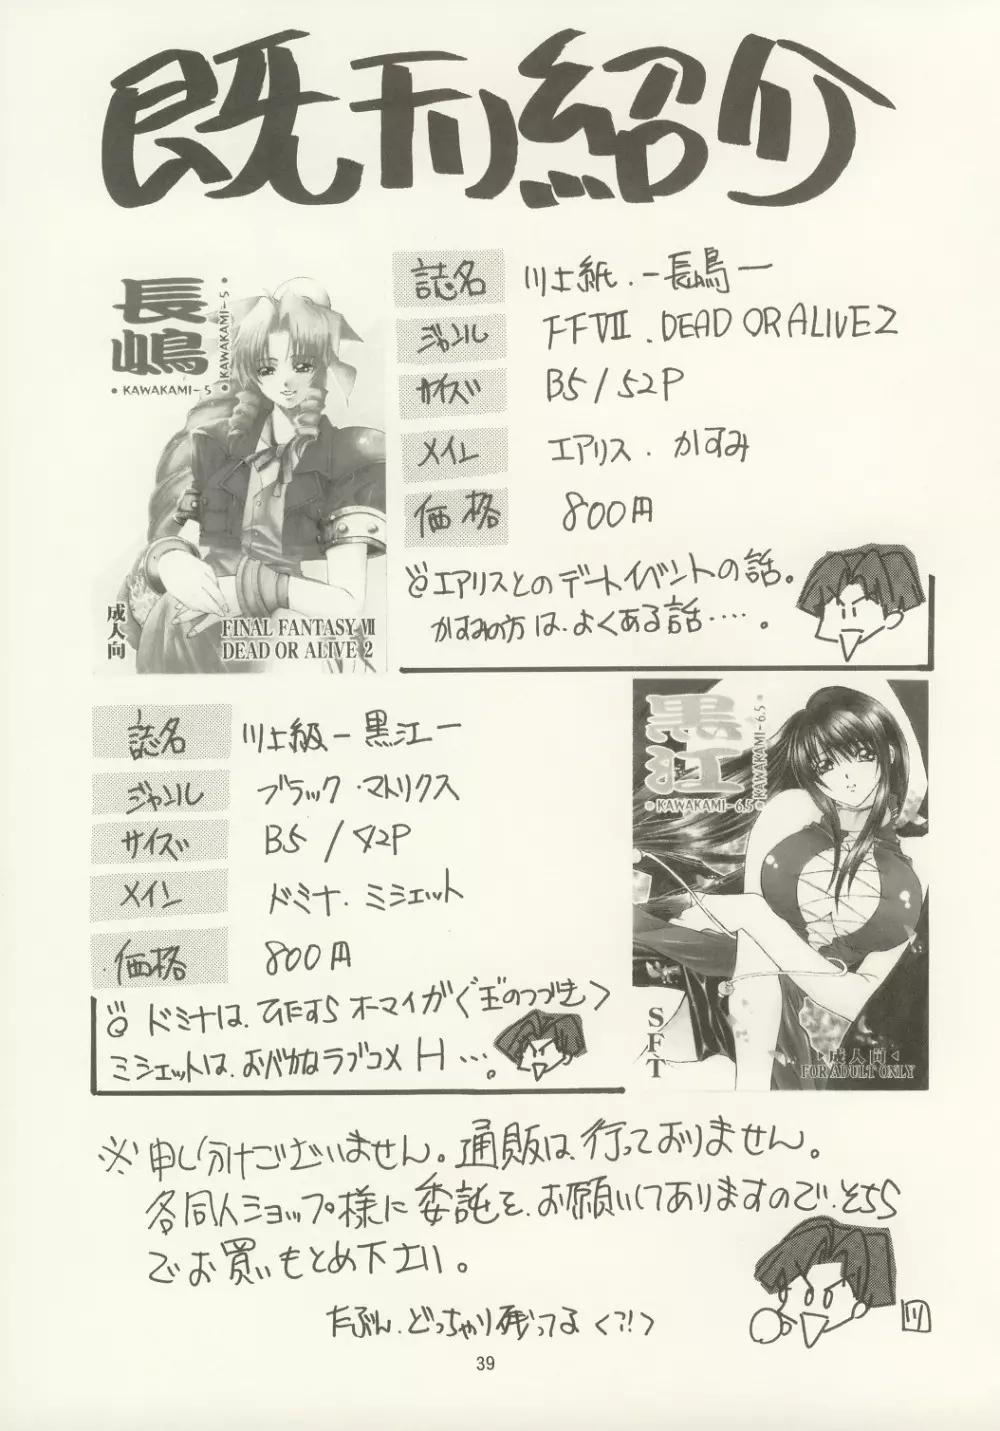 既刊紹介
長嶋
KAWAKAMI-5
KAWAKAMI-5
成人向
FINAL FANTASY Ⅶ
DEAD OR ALIVE 2
誌名 川上紙.-長鳥-
ジャンル FFⅦ.DEAD OR ALIVE2
サイズ B5/52P
メイン エアリス.かすみ
価格 800円
エアリスとのデートイベントの話。
かすみの方は.よくある話‥‥。
誌名 川上級-黒江-
ジャンル ブラック・マトリクス
サイズ B5/42P
メイン ドミナ.ミシェット
価格 800円
ドミナは.ひたすらオーマイガ(玉のつづき)
ミシェットは.おバカなラブコメH…。
黒江
KAWAKAMI-6.5
KAWAKAMI-6.5
SFT
成人向
FOR ADULT ONLY
※申し分けございません。通販は行っておりません。
各同人ショップ様に委託を.お願いしてありますので.そちら
でお買いもとめ下さい。
たぶん.どっちゃり残ってる<?!>
川
39